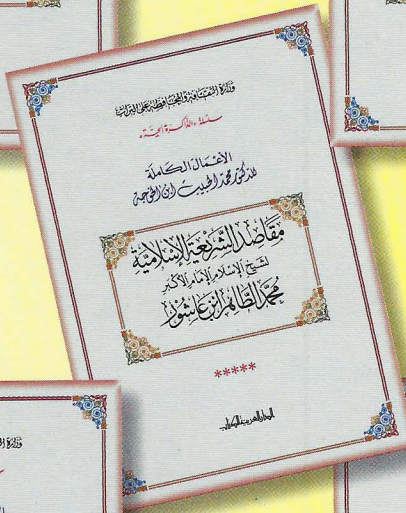 وزارة الثقافة والمحافظة على التراث
سلسلة «الذاكرة الحية»
الأعمال الكاملة
للدكتور محمد الحبيب ابن الخوجة
مقاصد الشريعة الإسلامية
لشيخ الإسلام الإمام الأكبر
محمد الطاهر ابن عاشور
*****
الدار العربية للكتاب
وزارة